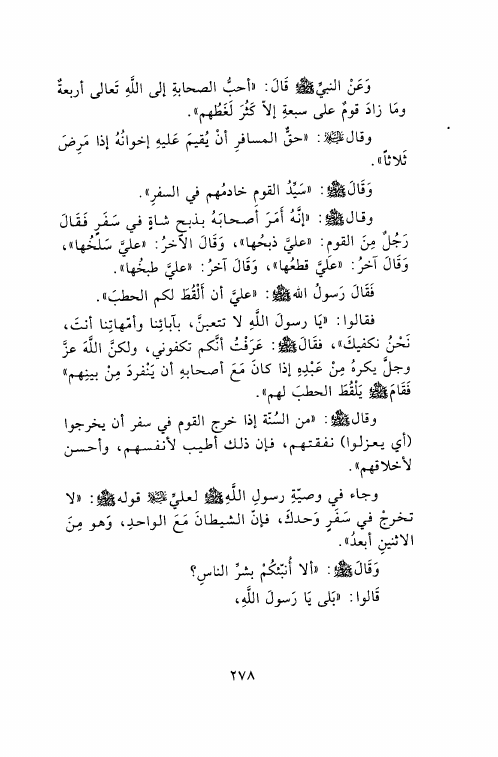 وَعَنْ النبيِّ ﷺ قَالَ: «أحبُّ الصحابةِ إلى اللَّهِ تَعالى أربعةٌ
ومَا زادَ قومٌ على سبعةِ إلاّ كثُرَ لَغَطُهم».
وقال ﷺ: «حقُّ المسافرِ أنْ يُقيمَ عَليهِ إخوانُهُ إذا مَرِضَ
ثَلاثاً».
وَقَالَ ﷺ: «سَيِّدُ القومِ خادمُهم في السفرِ».
وقال ﷺ: «إنَّهُ أمَرَ أصحابَهُ بذبحِ شاةٍ في سَفَرٍ فَقَالَ
رَجُلٌ مِنَ القومِ: «عليَّ ذبحُها»، وَقَالَ الآخرُ: «عليَّ سَلخُها»،
وَقَالَ آخرُ: «عَليَّ قطعُها»، وَقَالَ آخرُ: «عليَّ طبخُها».
فَقَالَ رَسولُ الله ﷺ: «عليَّ أن ألْقُطَ لكم الحطبَ».
فقالوا: «يَا رسولَ اللَّهِ لا تتعبنَّ، بآبائِنا وأمّهاتِنا أنتَ،
نَحْنُ نكفيكَ»، فقالَ ﷺ: عَرَفْتُ أنَّكم تكفوني، ولكنَّ اللَّهَ عزَّ
وجلَّ يكرهُ مِنْ عَبْدِهِ إذا كانَ مَعَ أصحابهِ أن يَنْفردَ مِنْ بينِهم»
فَقَامَ ﷺ يَلْقُطَ الحطبَ لهم».
وقال ﷺ: «من السُنّة إذا خرج القوم في سفر أن يخرجوا
(أي يعزلوا) نفقتهم، فإن ذلك أطيب لأنفسهم، وأحسن
لأخلاقهم».
وجاء في وصيّةِ رسولِ اللَّهِ ﷺ لعليٍّ قوله ﷺ: «لا
تخرجْ في سَفَرٍ وَحدكَ، فإنّ الشيطانَ مَعَ الواحدِ، وَهو مِنَ
الاثنينِ أبعدُ».
وَقَالَ ﷺ: «ألا أُنبّئكُمْ بشرِّ الناسِ؟
قَالوا: «بَلى يَا رَسولَ اللَّهِ،
٢٧٨